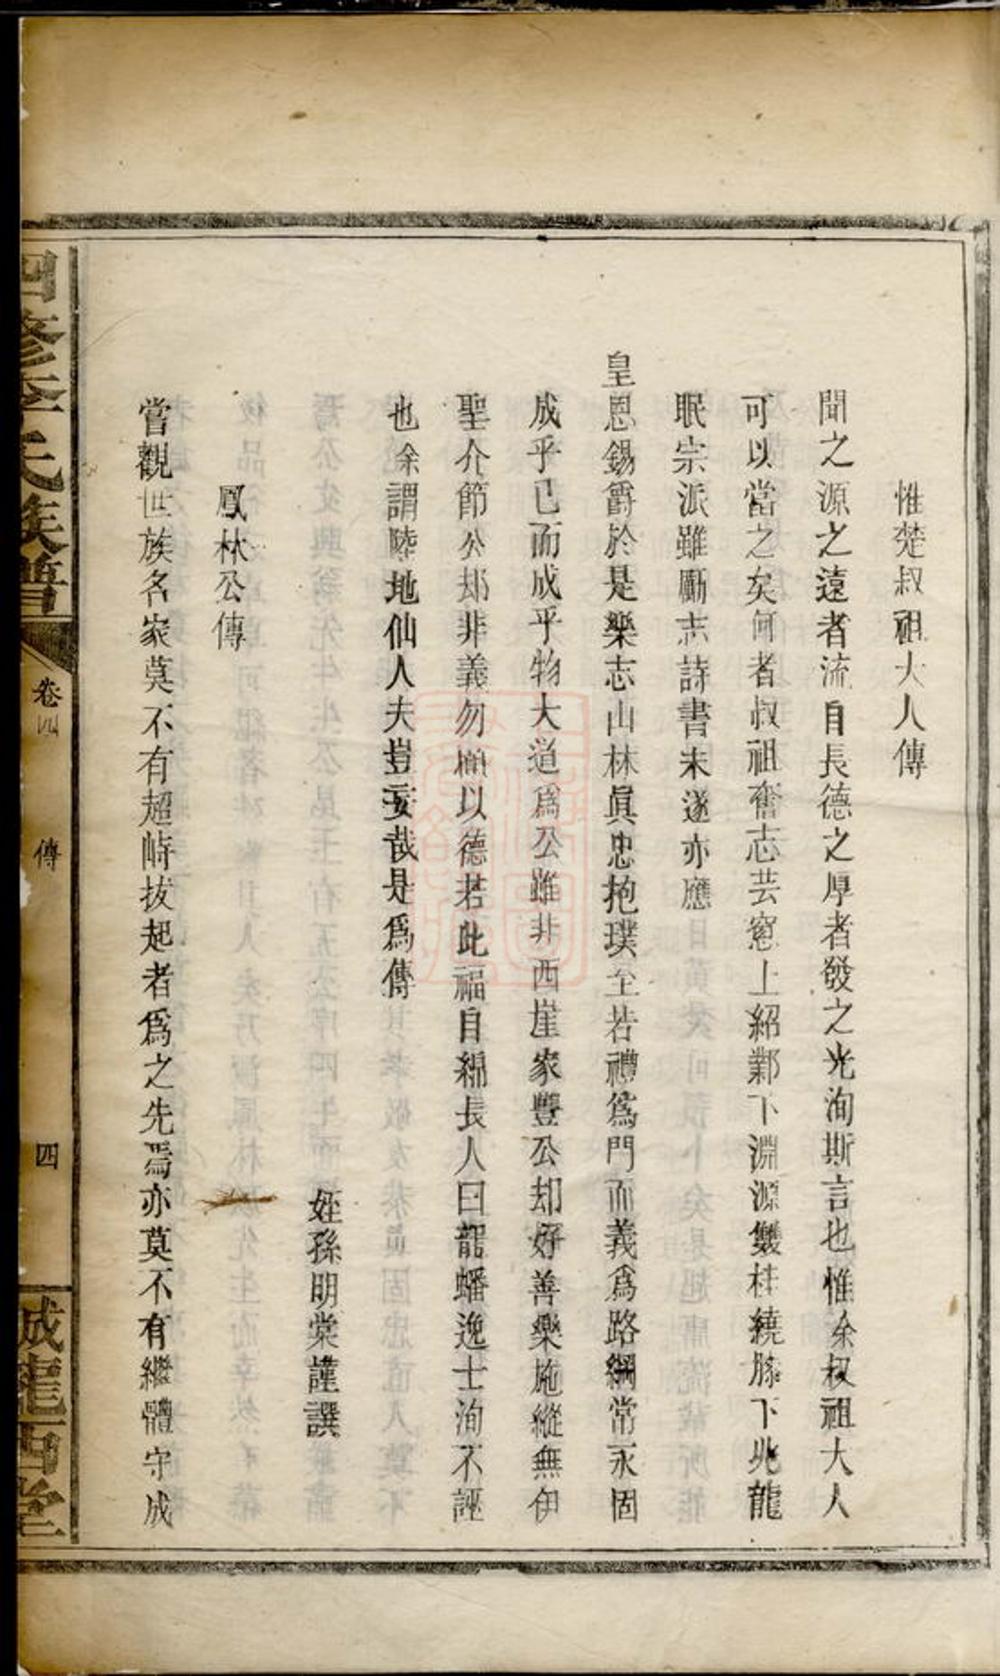 惟楚叔祖大人傳
聞之源之遠者流自長德之厚者發之光洵斯言也惟余叔祖大人
可以當之矣何者叔祖奮志芸窻上紹鄴下淵源雙桂繞膝下兆龍
眠宗派雖勵志詩書未遂亦應
皇恩錫爵於是樂志山林眞忠抱璞至若禮爲門而義爲路綱常永固
成乎已而成乎物大道爲公雖非西崖家豐公却好善樂施縱無伊
聖介節公却非義勿顧以德若此福自綿長人曰龍蟠逸士洵不誣
也余謂陸地仙人夫豈妄哉是爲傳
姪孫明棠謹譔
鳳林公傳
嘗觀世族名家莫不有超峙拔起者爲之先焉亦莫不有繼體守成
四修李氏族譜
卷四
傳
四
龍西堂